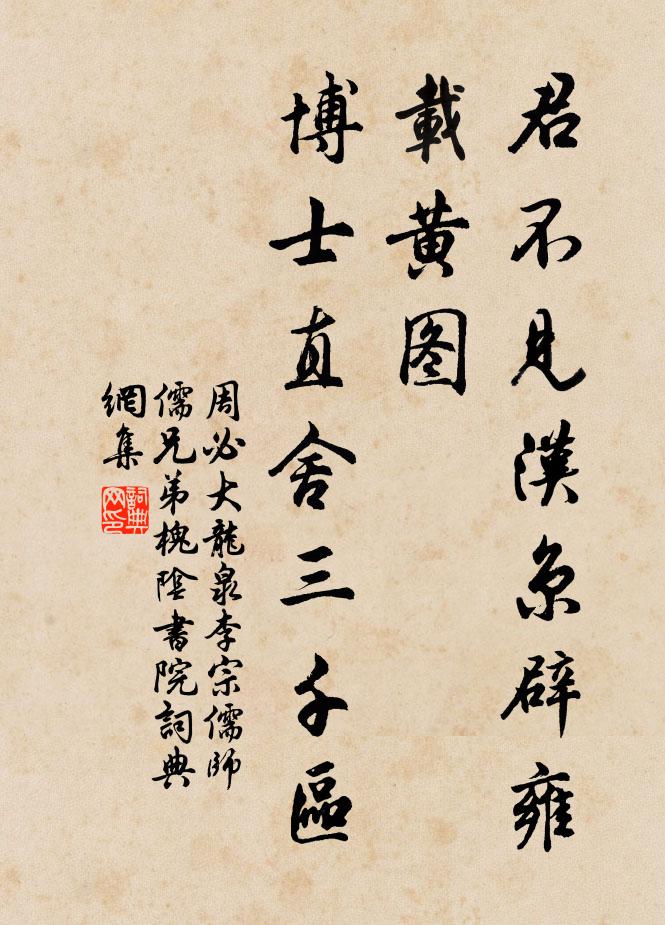 君不見漢京辟雍
載黄图
博士直舍三千區
周必大龍泉李宗儒師
儒兄弟槐陰書院詞典
網集
詞典网印